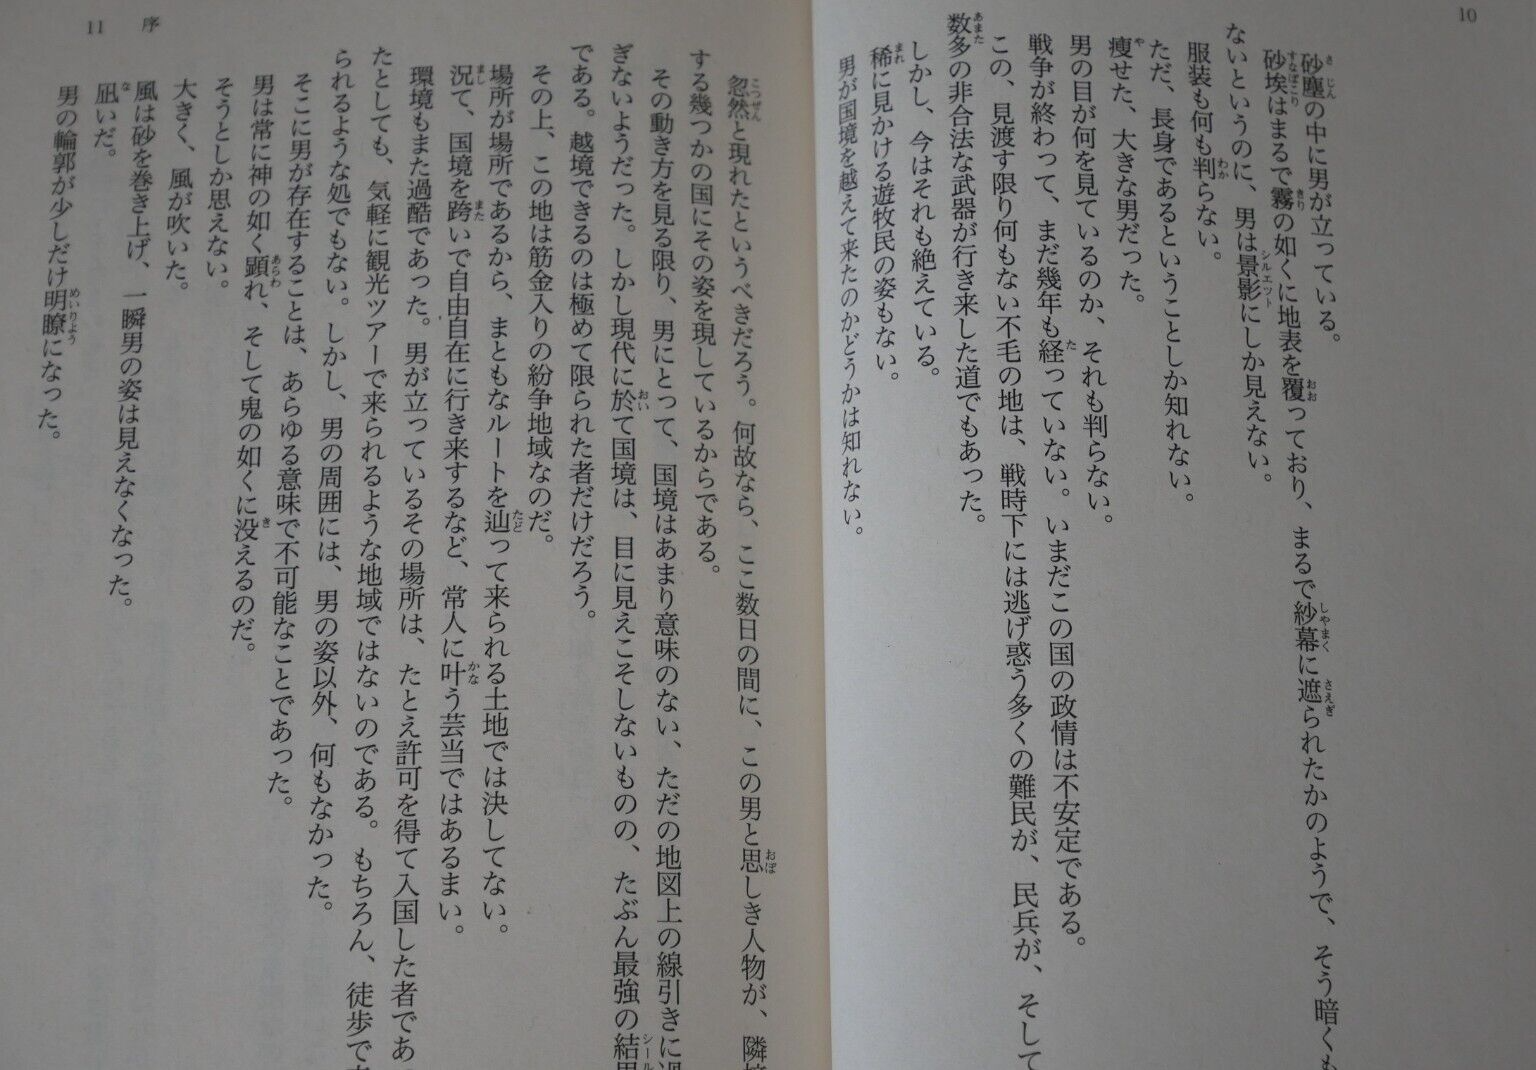 10
砂塵の中に男が立っている。
砂埃はまるで霧の如くに地表を覆っており、まるで紗幕に遮られたかのようで、そう暗くも
ないというのに、男は景影にしか見えない。
服装も何も判らない。
ただ、長身であるということしか知れない。
痩せた、大きな男だった。
男の目が何を見ているのか、それも判らない。
戦争が終わって、まだ幾年も経っていない。いまだこの国の政情は不安定である。
この、見渡す限り何もない不毛の地は、戦時下には逃げ惑う多くの難民が、民兵が、そして
数多の非合法な武器が行き来した道でもあった。
しかし、今はそれも絶えている。
稀に見かける遊牧民の姿もない。
男が国境を越えて来たのかどうかは知れない。
11 序
忽然と現れたというべきだろう。何故なら、ここ数日の間に、この男と思しき人物が、隣
する幾つかの国にその姿を現しているからである。
その動き方を見る限り、男にとって、国境はあまり意味のない、ただの地図上の線引きに
ぎないようだった。しかし現代に於て国境は、目に見えこそしないものの、たぶん最強の結
である。越境できるのは極めて限られた者だけだろう。
その上、この地は筋金入りの紛争地域なのだ。
場所が場所であるから、まともなルートを辿って来られる土地では決してない。
況て、国境を跨いで自由自在に行き来するなど、常人に叶う芸当ではあるまい。
環境もまた過酷であった。男が立っているその場所は、たとえ許可を得て入国した者であ
たとしても、気軽に観光ツアーで来られるような地域ではないのである。もちろん、徒歩で
られるような処でもない。しかし、男の周囲には、男の姿以外、何もなかった。
そこに男が存在することは、あらゆる意味で不可能なことであった。
男は常に神の如く顕れ、そして鬼の如くに没えるのだ。
そうとしか思えない。
大きく、風が吹いた。
風は砂を巻き上げ、一瞬男の姿は見えなくなった。
凪いだ。
男の輪郭が少しだけ明瞭になった。